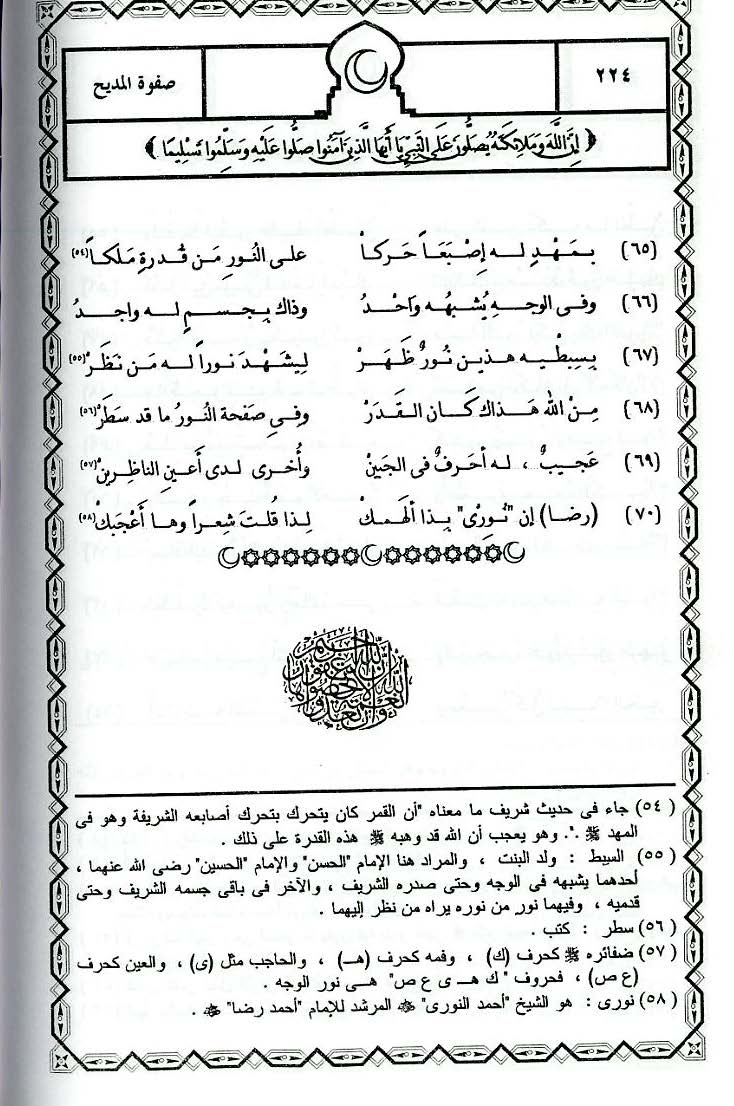 ٢٢٤
صفوة المديح
﴿ إِنَّ اللَّهَ وَمَلَائِكَتَهُ يُصَلُّونَ عَلَى النَّبِيِّ يَا أَيُّهَا الَّذِينَ آمَنُوا صَلُّوا عَلَيْهِ وَسَلِّمُوا تَسْلِيمًا ﴾
(٦٥) بـمَـهْـدِ لــه إِصْبَعَـاً حَـركـاً على النُورِ مَن قُـدرةِ مَلَكـاً(٥٤)
(٦٦) وفى الوجـهِ يُشبهُـه وَاحْـدُ وذاك بِـجـسـمٍ لــه واجـدُ
(٦٧) بِسِبطْيه هـذيـن نُـورٌ ظَهَـرْ لِيشْهَـدَ نـوراً لــه مَن نَظَرْ(٥٥)
(٦٨) مِـنَ اللهِ هَـذاك كَـان القَـدَرْ وفى صَفحـة النُورُ ما قد سَطَرْ(٥٦)
(٦٩) عَجيبٌ ، له أحرفٌ فى الجَبَينْ وأُخرى لدى أعين الناظرينْ(٥٧)
(٧٠) (رضا) إن "نُورىْ" بذا ألهمـك لذا قُلتَ شِعراً وها أَعْجَبكْ(٥٨)
(٥٤) جاء فى حديث شريف ما معناه "أن القمر كان يتحرك بتحرك أصابعه الشريفة وهو فى
المهد ﷺ .". وهو يعجب أن الله قد وهبه ﷺ هذه القدرة على ذلك .
(٥٥) السبط : ولد البنت ، والمراد هنا الإمام "الحسن" والإمام "الحسين" رضى الله عنهما ،
أحدهما يشبهه فى الوجه وحتى صدره الشريف ، والآخر فى باقى جسمه الشريف وحتى
قدميه ، وفيهما نور من نوره يراه من نظر إليهما .
(٥٦) سطر : كتب .
(٥٧) ضفائره ﷺ كحرف (ك) ، وفمه كحرف (هـ) ، والحاجب مثل (ى) ، والعين كحرف
(ع ص) ، فحروف " ك هـ ى ع ص" هى نور الوجه .
(٥٨) نورى : هو الشيخ "أحمد النورى" المرشد للإمام "أحمد رضا" .